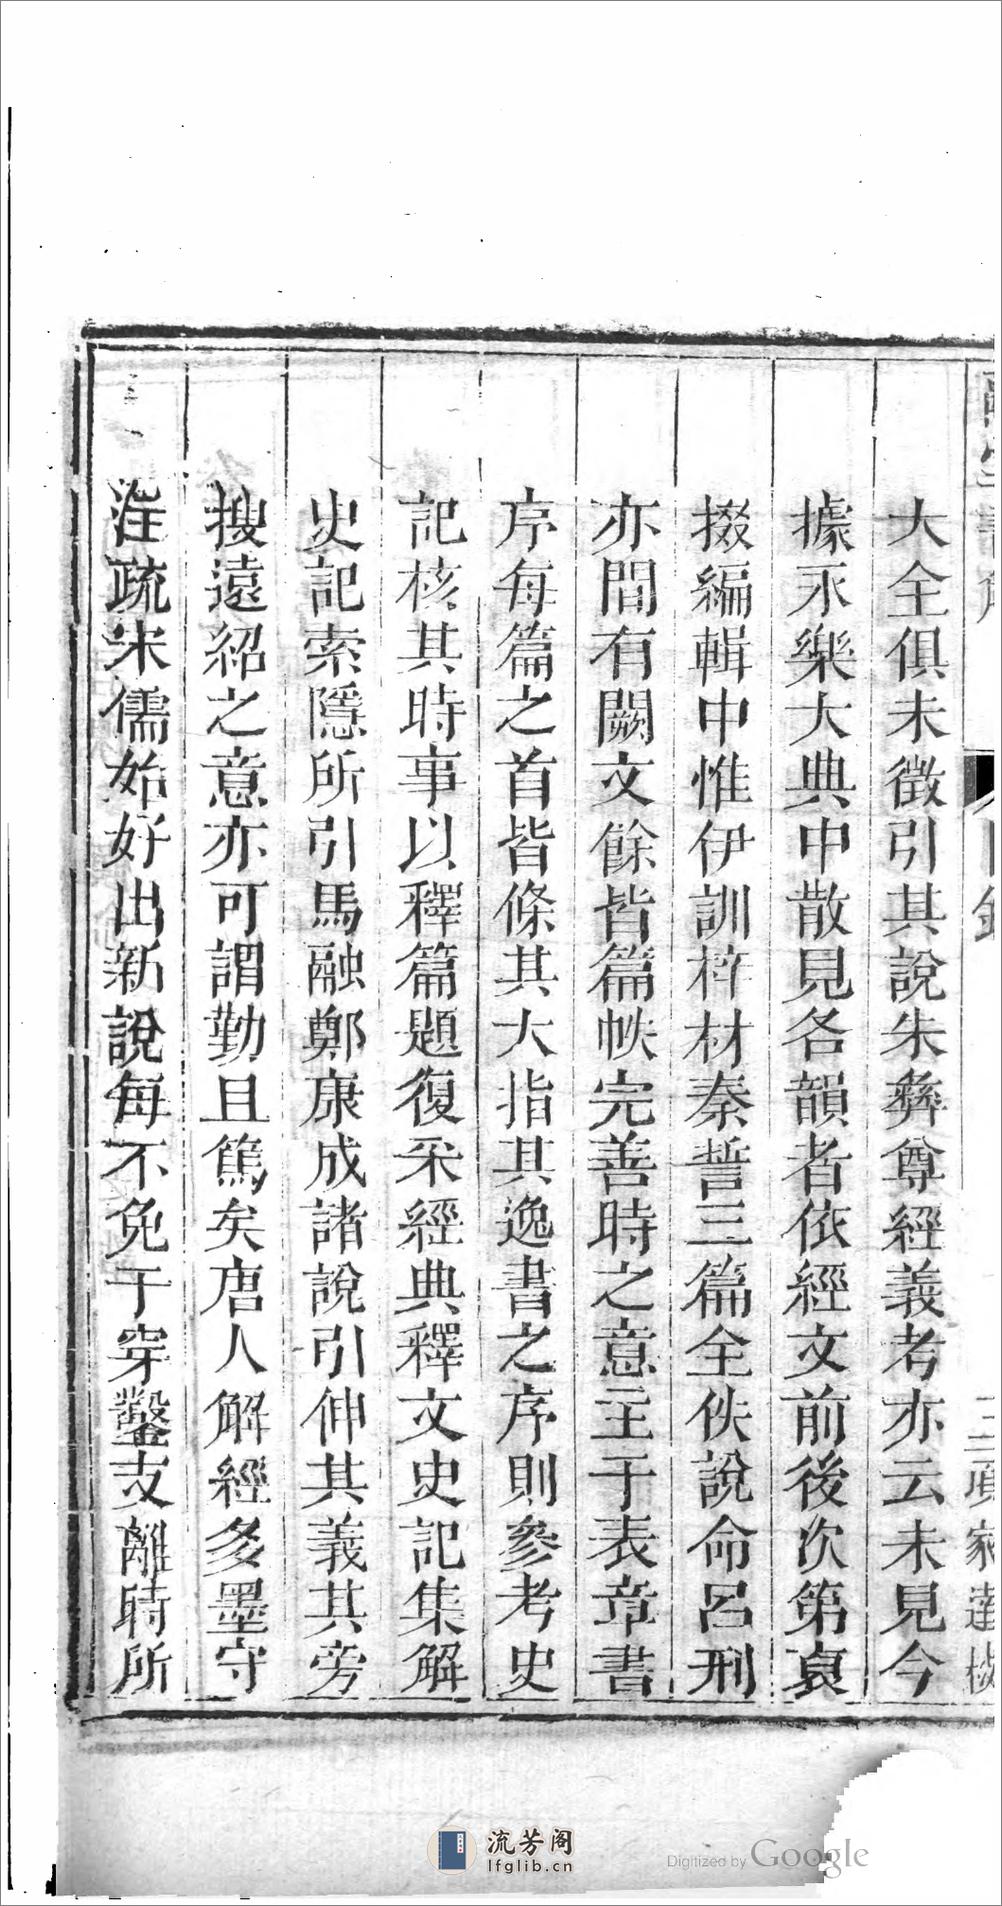 大全俱未徵引其說朱彝尊經義考亦云未見今
據永樂大典中散見各韻者依經文前後次第裒
掇編輯中惟伊訓梓材秦誓三篇全佚說命呂刑
亦間有闕文餘皆篇帙完善時之意主于表章書
序每篇之首皆條其大指其逸書之序則參考史
記核其時事以釋篇題復采經典釋文史記集解
史記索隱所引馬融鄭康成諸說引伸其義其旁
搜遠紹之意亦可謂勤且篤矣唐人解經多墨守
注疏宋儒始好出新說每不免于穿鑿支離時所
流芳阁
lfglib.cn
Digitized by Google